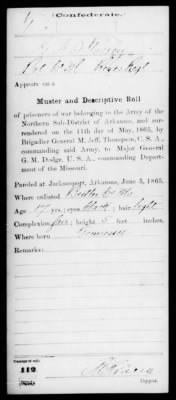 Confederate.
Appears on a
Muster and Descriptive Roll
of prisoners of war belonging to the Army of the
Northern Sub-District of Arkansas, and sur-
rendered on the 11th day of May, 1865, by
Brigadier General M. Jeff. Thompson, C. S. A.,
commanding said Army, to Major General
G. M. Dodge, U. S. A., commanding Depart-
ment of the Missouri.
Paroled at Jacksonport, Arkansas, June 5, 1865.
Where enlisted Butler Co Mo
Age 17 yrs; eyes Black; hair light
Complexion fair; height 5 feet inches.
Where born Tennessee
Remarks:
Number of roll:
112
Copyist.